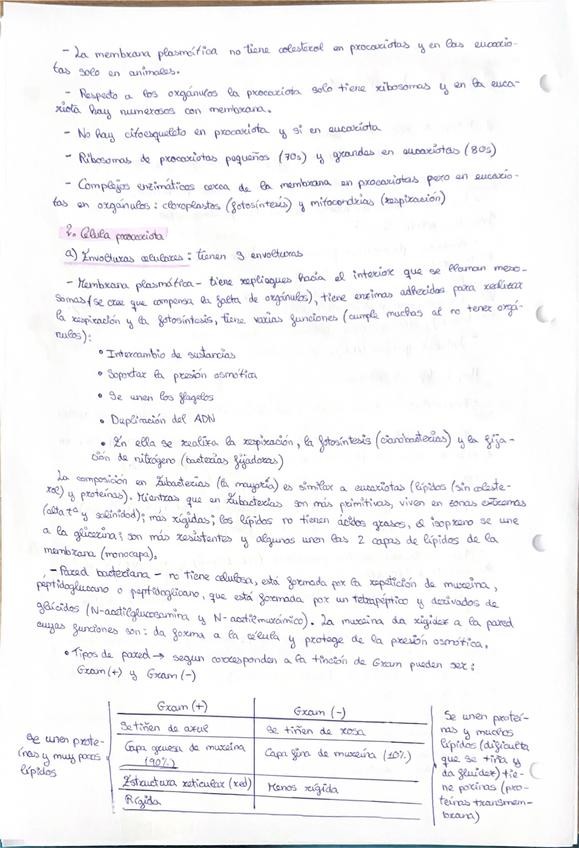 - La membrana plasmática no tiene colesterol en procariotas y en las eucario-
tas solo en animales.
- Respecto a los orgánulos la procariota solo tiene ribosomas y en la euca-
riota hay numerosos con membrana.
- No hay citoesqueleto en procariota y si en eucariota
- Ribosomas de procariotas pequeños (70s) y grandes en eucariotas (80s)
- Complejos enzimáticos cerca de la membrana en procariotas pero en eucario-
tas en orgánulos: cloroplastos (fotosíntesis) y mitocondrias (respiración)
2. Célula procariota
a) Envolturas celulares: tienen 3 envolturas
- Membrana plasmática - tiene repliegues hacia el interior que se llaman meso-
somas (se cree que compensa la falta de orgánulos), tiene enzimas adheridas para realizar
la respiración y la fotosíntesis, tiene varias funciones (cumple muchas al no tener orgá-
nulos):
• Intercambio de sustancias
• Soportar la presión osmótica
• Se unen los flagelos
• Duplicación del ADN
• En ella se realiza la respiración, la fotosíntesis (cianobacterias) y la fija-
ción de nitrógeno (bacterias fijadoras)
La composición en Eubacterias (la mayoría) es similar a eucariotas (lípidos (sin coleste-
rol) y proteínas). Mientras que en Eubacterias son más primitivas, viven en zonas extremas
(alta tª y salinidad); más rígidas; los lípidos no tienen ácidos grasos, el isopreno se une
a la glicerina; son más resistentes y algunos unen las 2 capas de lípidos de la
membrana (monocapa).
- Pared bacteriana - no tiene celulosa, está formada por la repetición de mureína,
peptidoglucano o peptidoglicano, que está formada por un tetrapéptico y derivados de
glúcidos (N-acetilglucosamina y N-acetilmurámico). La mureína da rigidez a la pared
cuyas funciones son: da forma a la célula y protege de la presión osmótica.
• Tipos de pared → segun corresponden a la tinción de Gram pueden ser:
Gram (+) y Gram (-)
Gram (+) Gram (-)
Se tiñen de azul Se tiñen de rosa
Capa gruesa de mureína (90%) Capa fina de mureína (10%)
Estructura reticular (red) Menos rígida
Rígida
Se unen prote-
ínas y muy pocos
lípidos
Se unen proteí-
nas y muchos
lípidos (dificulta
que se tiña y
da fluidez) tie-
ne porinas (pro-
teínas transmem-
brana)